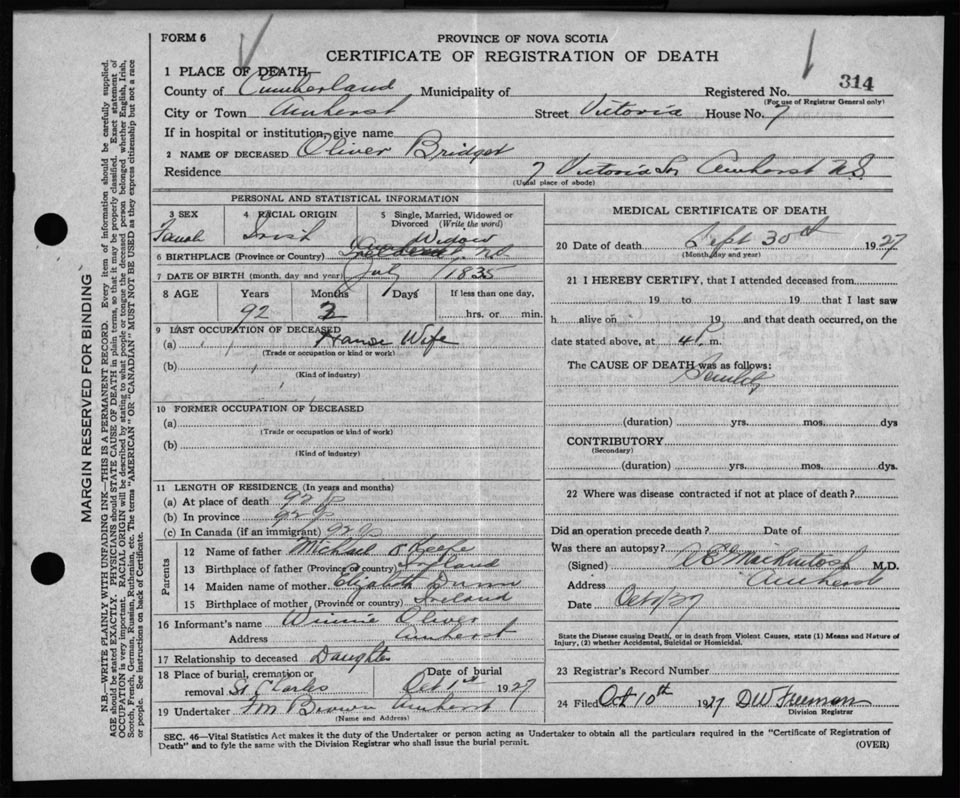 FORM 6
PROVINCE OF NOVA SCOTIA
CERTIFICATE OF REGISTRATION OF DEATH
314
1 PLACE OF DEATH
County of Cumberland Municipality of Registered No.
(For use of Registrar General only)
City or Town Amherst Street Victoria House No. 7
If in hospital or institution, give name
2 NAME OF DECEASED Oliver Bridget
Residence 7 Victoria St Amherst N.S.
(Usual place of abode)
PERSONAL AND STATISTICAL INFORMATION
3 SEX 4 RACIAL ORIGIN 5 Single, Married, Widowed or Divorced (Write the word)
Irish Widow
6 BIRTHPLACE (Province or Country)
7 DATE OF BIRTH (month, day and year) July 1835
8 AGE Years Months Days If less than one day,
92 hrs. or min.
9 LAST OCCUPATION OF DECEASED
(a) House Wife
(Trade or occupation or kind or work)
(b)
(Kind of industry)
10 FORMER OCCUPATION OF DECEASED
(a)
(Trade or occupation or kind of work)
(b)
(Kind of industry)
11 LENGTH OF RESIDENCE (In years and months)
(a) At place of death 92
(b) In province 92
(c) In Canada (if an immigrant) 92
Parents
12 Name of father Michael O'Keefe
13 Birthplace of father (Province or country) Ireland
14 Maiden name of mother Elizabeth Dunn
15 Birthplace of mother (Province or country) Ireland
16 Informant's name Winnie Oliver
Address Amherst
17 Relationship to deceased Daughter
18 Place of burial, cremation or removal St Charles
Date of burial Oct 1st 1927
19 Undertaker Brown Amherst
(Name and Address)
MEDICAL CERTIFICATE OF DEATH
20 Date of death Sept 30th 1927
(Month, day and year)
21 I HEREBY CERTIFY, that I attended deceased from
19 to 19 that I last saw
h alive on 19 and that death occurred, on the
date stated above, at 4 P. m.
The CAUSE OF DEATH was as follows:
Senility
(duration) yrs. mos. dys
CONTRIBUTORY
(Secondary)
(duration) yrs. mos. dys.
22 Where was disease contracted if not at place of death?
Did an operation precede death? Date of
Was there an autopsy?
(Signed) MacKintosh M.D.
Address Amherst
Date
State the Disease causing Death, or in death from Violent Causes, state (1) Means and Nature of
Injury, (2) whether Accidental, Suicidal or Homicidal.
23 Registrar's Record Number
24 Filed Oct 10th 1927 DW Freeman
Division Registrar
SEC. 46—Vital Statistics Act makes it the duty of the Undertaker or person acting as Undertaker to obtain all the particulars required in the "Certificate of Registration of
Death" and to fyle the same with the Division Registrar who shall issue the burial permit.
(OVER)
MARGIN RESERVED FOR BINDING
N.B.—WRITE PLAINLY WITH UNFADING INK—THIS IS A PERMANENT RECORD. Every item of information should be carefully supplied.
AGE should be stated EXACTLY. PHYSICIANS should STATE CAUSE OF DEATH in plain terms, so that it may be properly classified. Exact statement of
OCCUPATION is very important. RACIAL ORIGIN will be described by stating to what people or tongue the deceased person belonged whether English, Irish,
Scotch, French, German, Russian, Ruthenian, etc. The terms "AMERICAN" OR "CANADIAN" MUST NOT BE USED as they express citizenship but not a race
or people. See instructions on back of Certificate.